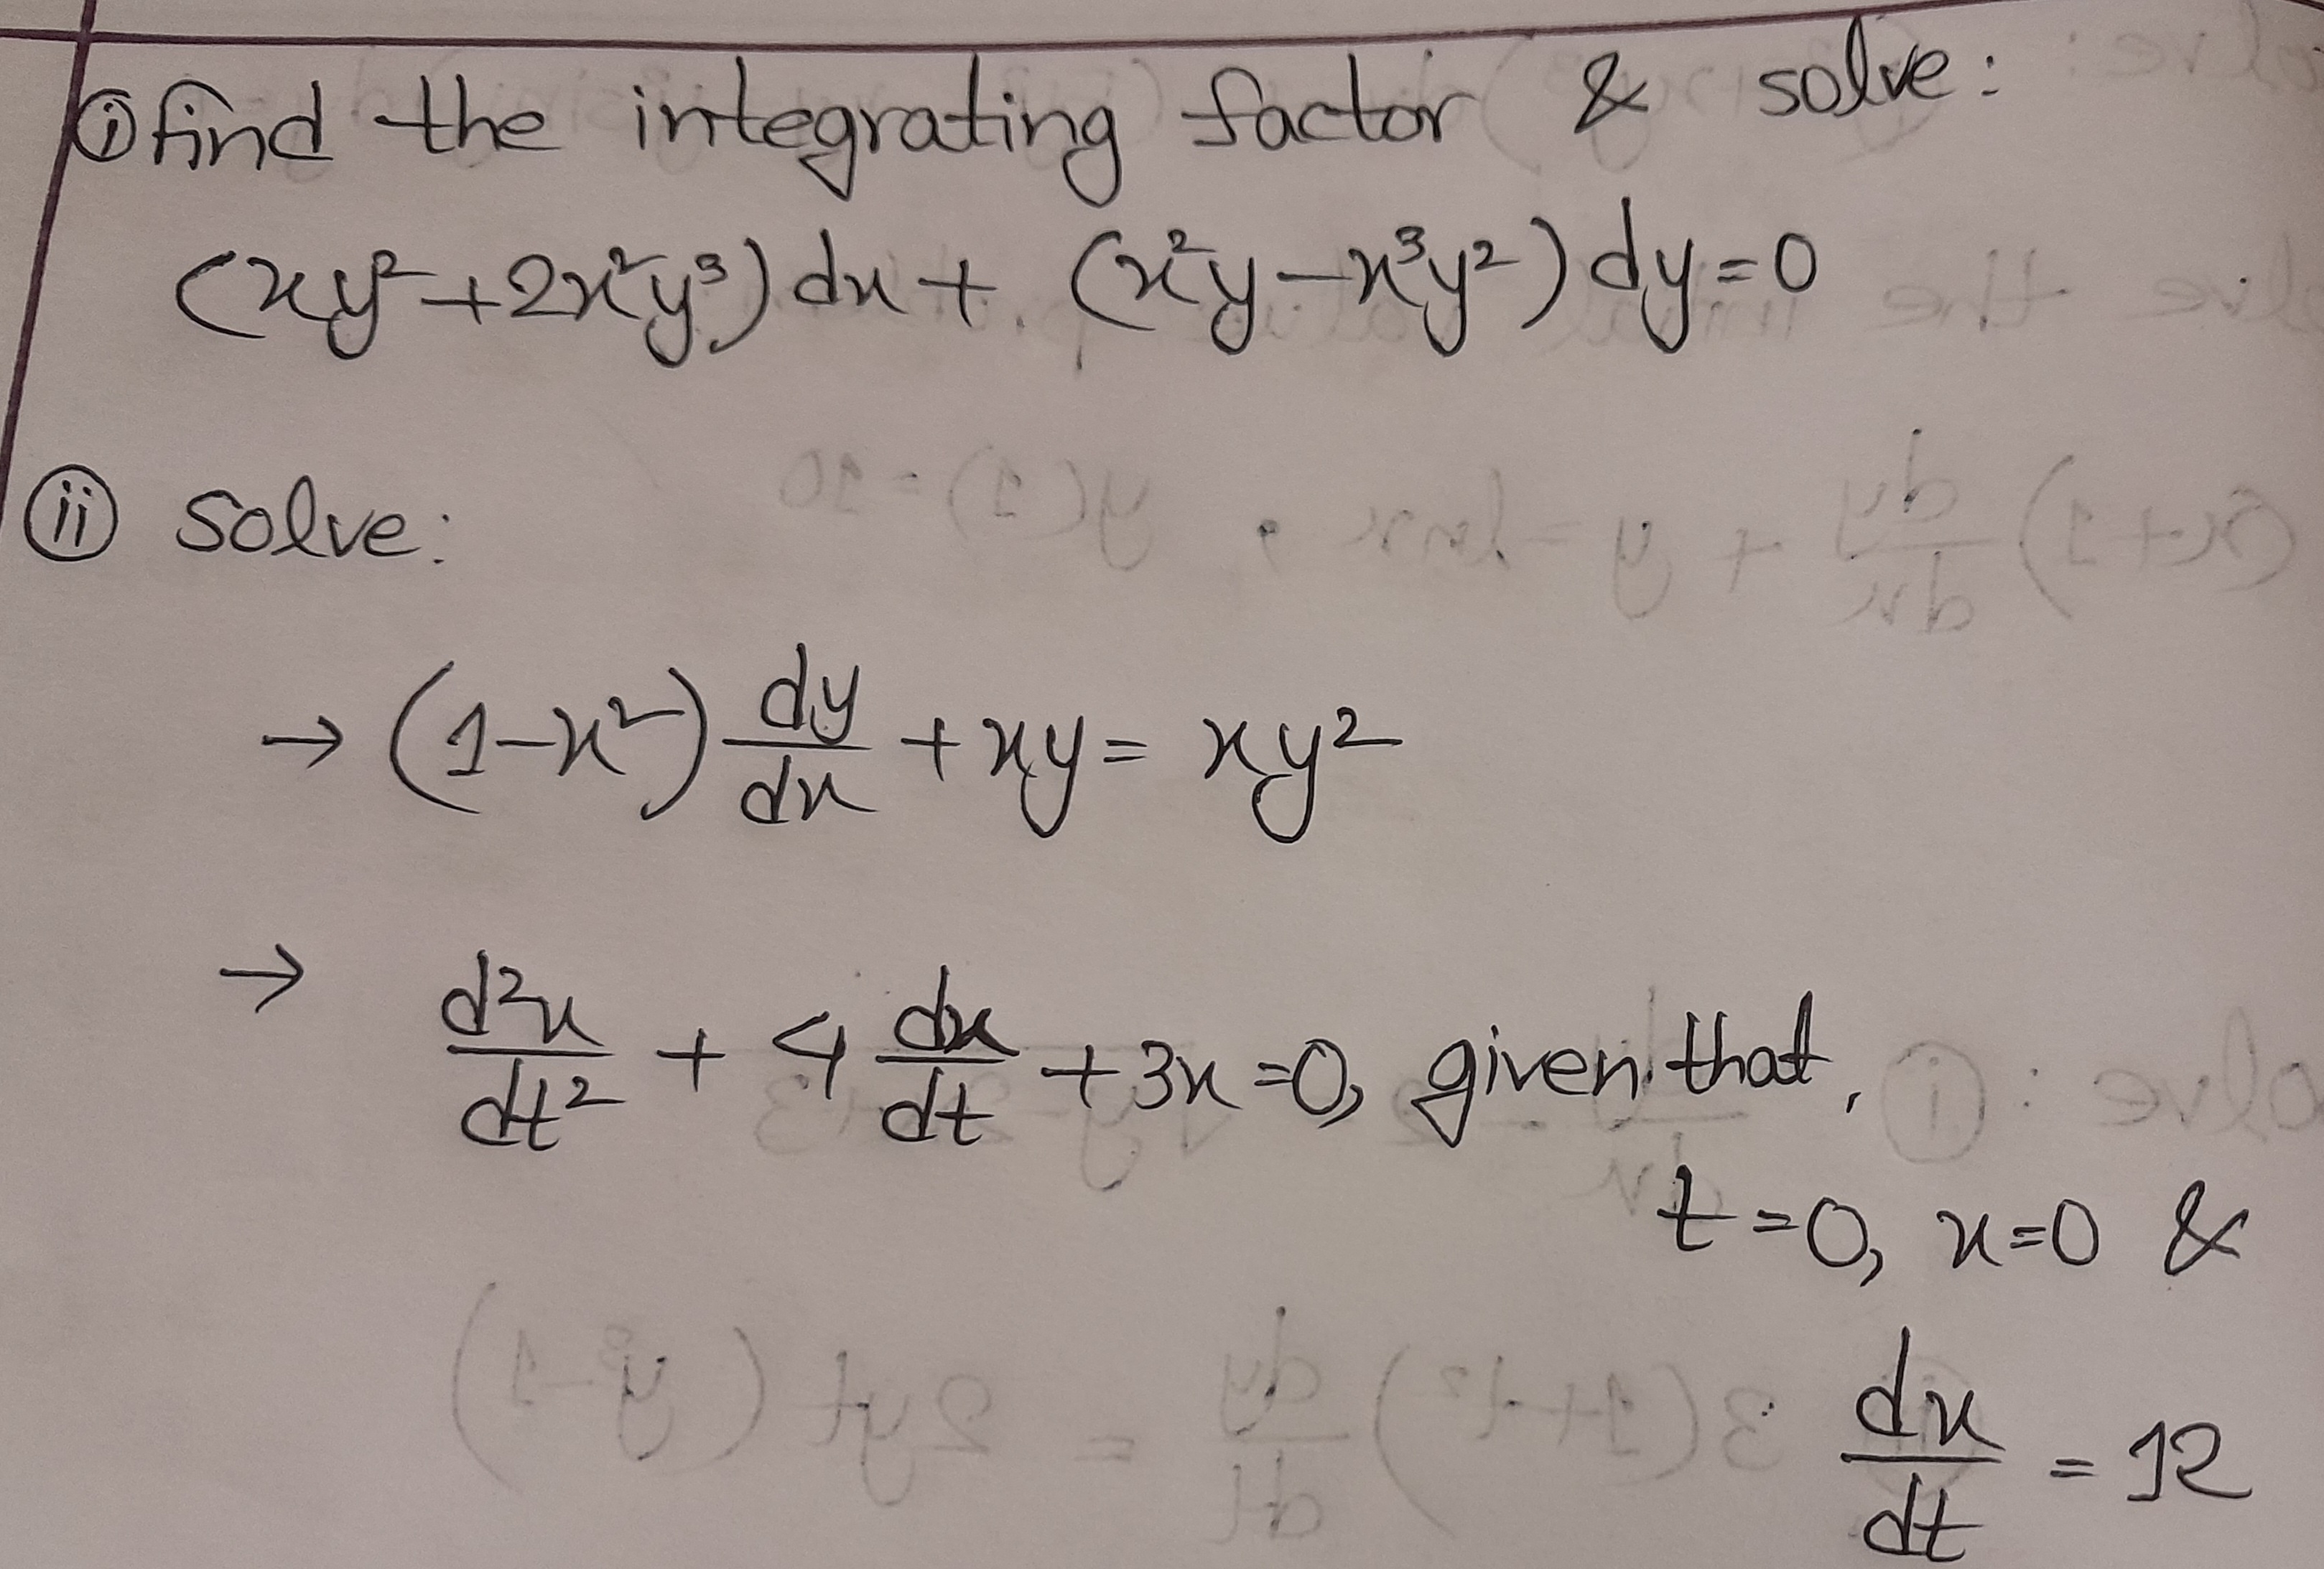 ① find the integrating factor & solve:
(xy²+2x²y³) dx + (x²y-x³y²) dy=0
ⅱ solve:
→ (1-x²) dy/dx + xy = xy²
→ d²x/dt² + 4 dx/dt + 3x=0, given that,
t=0, x=0 &
dx/dt = 12